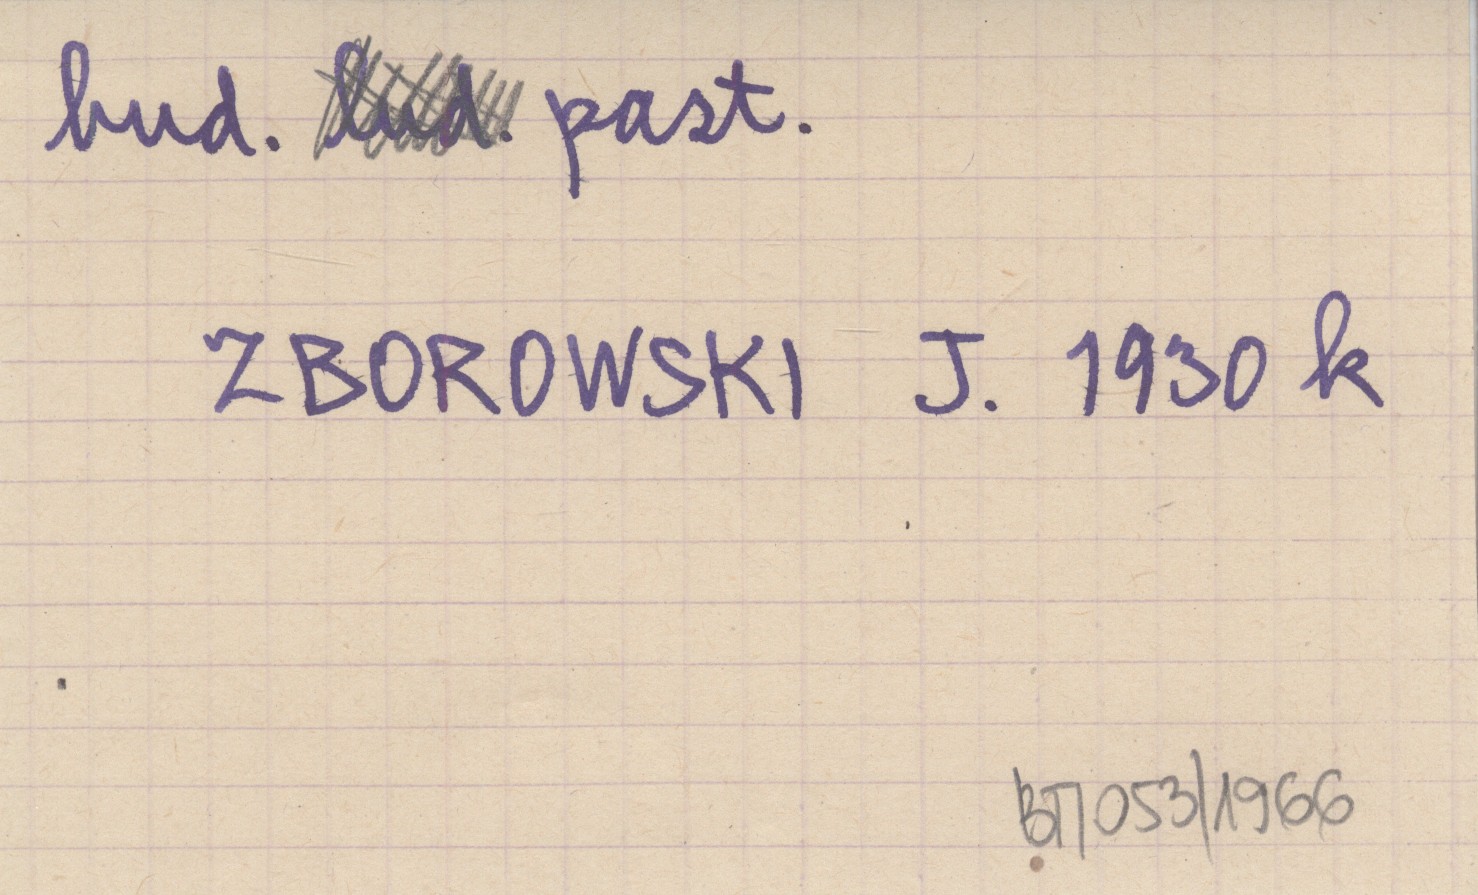 bud. lud. past.
ZBOROWSKI J. 1930 k
BT/053/1966